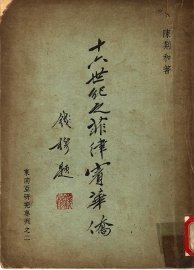 陳荆和著
十六世紀之菲律賓華僑
錢穆題
東南亞研究專刊之二